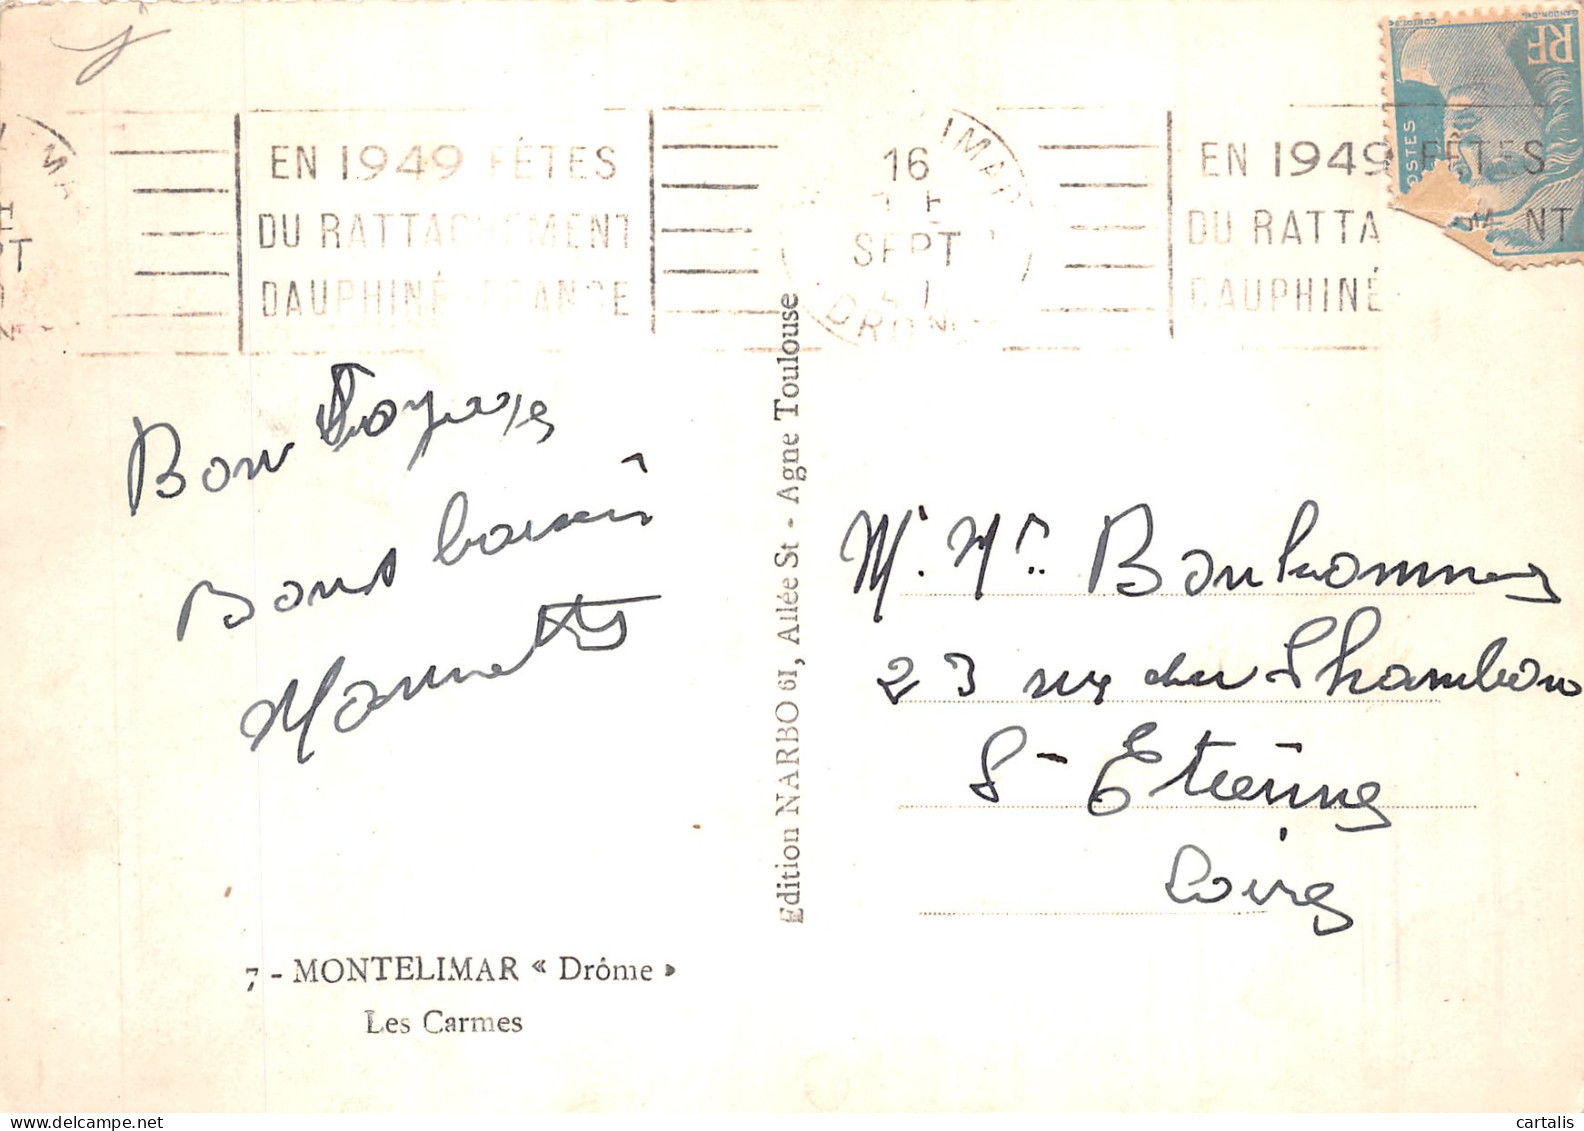 EN 1949 FÊTES
DU RATTACHEMENT
DAUPHINÉ FRANCE
16
SEPT
IMAR
DROME
EN 1949 FÊTES
DU RATTA MENT
DAUPHINÉ
RF
POSTES
Bon Voyage
Bons baisers
Mannette
Edition NARBO 61, Allée St - Agne Toulouse
Mr. Me. Bonhomme
23 rue du Chambon
St Etienne
Loire
7 - MONTELIMAR « Drôme »
Les Carmes
cartalis